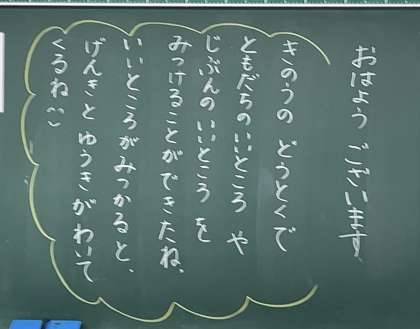 おはよう ございます
きのうの どうとくで
ともだちのいいところ や
じぶんのいいところ を
みつけることができたね。
いいところがみつかると、
げんきと ゆうきが わいて
くるね